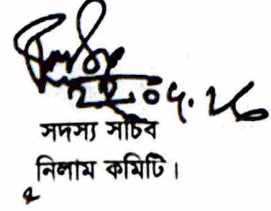 ২২.০৭.২৬
সদস্য সচিব
নিলাম কমিটি।